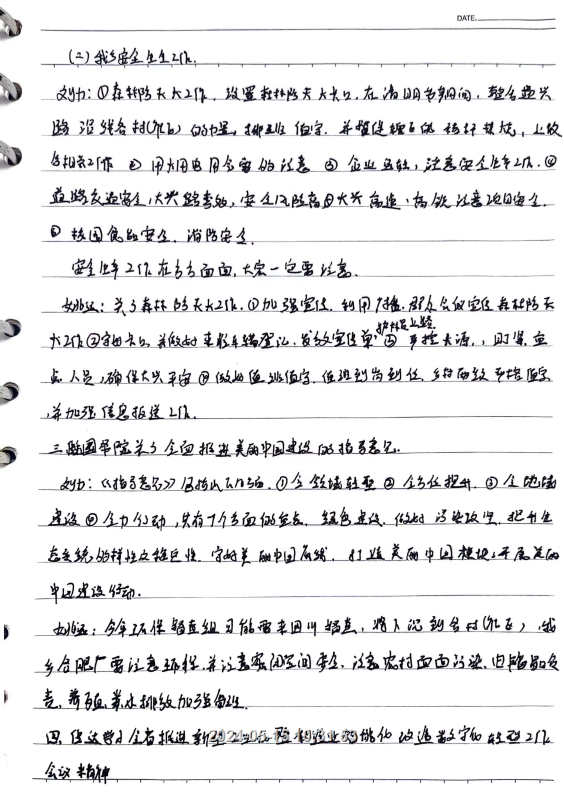 DATE.
(二)我乡安全生产工作.
刘力:①森林防灭火工作,设置森林防灭火卡口,在清明节期间,整合
路沿线各村(社区)的力量,排班值守,并督促
各相关工作 ②用火用电用气要的注意 ③企业 ,注意安全生产工作.④
道路交通安全,大兴 ,安全风险 大兴高速、高铁注意项目安全.
⑤校园食品安全、消防安全.
安全生产工作在方方面面,大家一定要注意.
:关于森林防灭火工作.①加强宣传,利用 、群众会议宣传森林防灭
护林员上路
火工作②守好卡口,并做好来往车辆登记,发放宣传单.③严控火源, 重
点人员,确保大兴平安④做好值班值守,值班到岗到位,乡村两级严格值守
,并加强信息报送工作.
三、 国务院关于全面推进美丽中国建设的指导意见.
刘力:《指导意见》 ①全领域转型②全方位提升.③全地域
建设④全力行动,共有7个方面的重点,绿色建设,做好污染攻坚,提升生
态系统多样性及稳定性,守好美丽中国底线,打造美丽中国 ,开展美丽
中国建设行动.
:今年环保督查组可能要来四川督查,将下沉到各村(社区),我
乡合肥厂要注意环保,并注意密闭空间安全,注意农村面面污染,
责,养殖、养水排放加强管理.
四、传达学习全省推进新型工业化暨 优化改造数字化转型工作
会议精神
2024-05-13 19:31:59